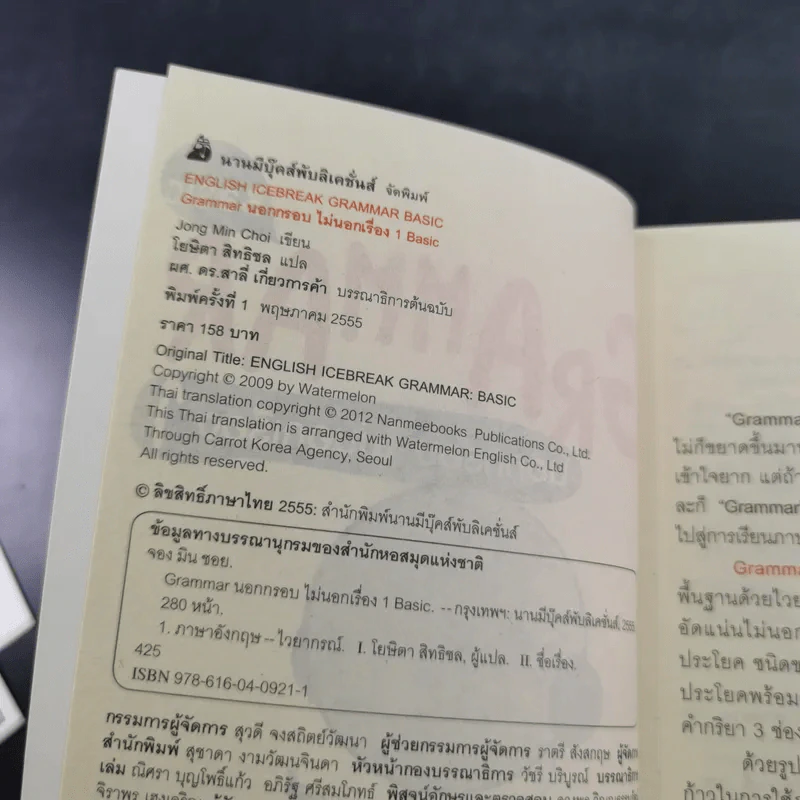 นานมีบุ๊คส์พับลิเคชั่นส์ จัดพิมพ์
ENGLISH ICEBREAK GRAMMAR BASIC
Grammar นอกกรอบ ไม่นอกเรื่อง 1 Basic
Jong Min Choi เขียน
โยษิตา สิทธิชล แปล
ผศ. ดร.สาลี่ เกี่ยวการค้า บรรณาธิการต้นฉบับ
พิมพ์ครั้งที่ 1 พฤษภาคม 2555
ราคา 158 บาท
Original Title: ENGLISH ICEBREAK GRAMMAR: BASIC
Copyright © 2009 by Watermelon
Thai translation copyright © 2012 Nanmeebooks Publications Co., Ltd.
This Thai translation is arranged with Watermelon English Co., Ltd
Through Carrot Korea Agency, Seoul
All rights reserved.
© ลิขสิทธิ์ภาษาไทย 2555: สำนักพิมพ์นานมีบุ๊คส์พับลิเคชั่นส์
ข้อมูลทางบรรณานุกรมของสำนักหอสมุดแห่งชาติ
จอง มิน ชอย.
Grammar นอกกรอบ ไม่นอกเรื่อง 1 Basic. -- กรุงเทพฯ: นานมีบุ๊คส์พับลิเคชั่นส์, 2555
280 หน้า.
1. ภาษาอังกฤษ -- ไวยากรณ์. I. โยษิตา สิทธิชล, ผู้แปล. II. ชื่อเรื่อง.
425
ISBN 978-616-04-0921-1
กรรมการผู้จัดการ สุวดี จงสถิตย์วัฒนา ผู้ช่วยกรรมการผู้จัดการ ราตรี สังสกฤษ
สำนักพิมพ์ สุชาดา งามวัฒนจินดา หัวหน้ากองบรรณาธิการ วัชรี บริบูรณ์
เล่ม ณิศรา บุญโพธิ์แก้ว อภิรัฐ ศรีสมโภทธ์ พิสูจน์อักษรและตรวจสอบ
"Gramma
ไม่ก็ขยาดขึ้นมา
เข้าใจยาก แต่ถ้า
ละก็ "Grammar
ไปสู่การเรียนภา
Gramma
พื้นฐานด้วยไวย
อัดแน่นไม่นอก
ประโยค ชนิดข
ประโยคพร้อม
คำกริยา 3 ช่อง
ด้วยรูป